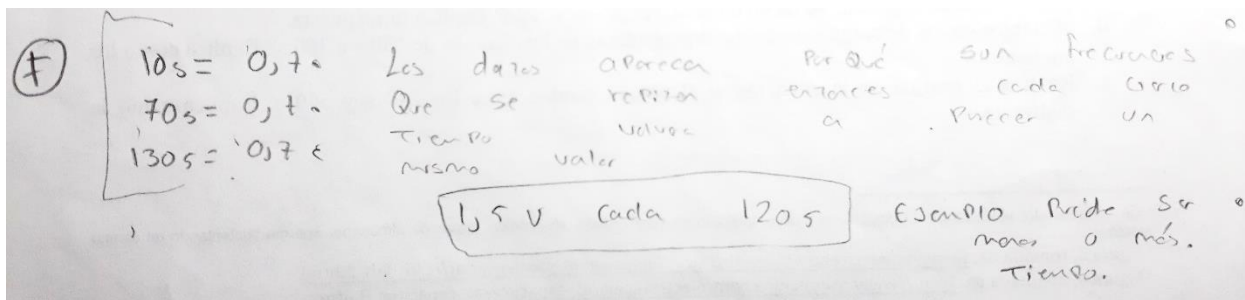 F
10s = 0,7. Los datos aparecen Por Qué son frecuencias
70s = 0,7. Que se repiten entonces cada cierto
Tiempo vuelve a Parecer un
130s = 0,7 mismo valor
1,5 V Cada 120s Ejemplo Puede Ser
menos o más.
Tiempo.